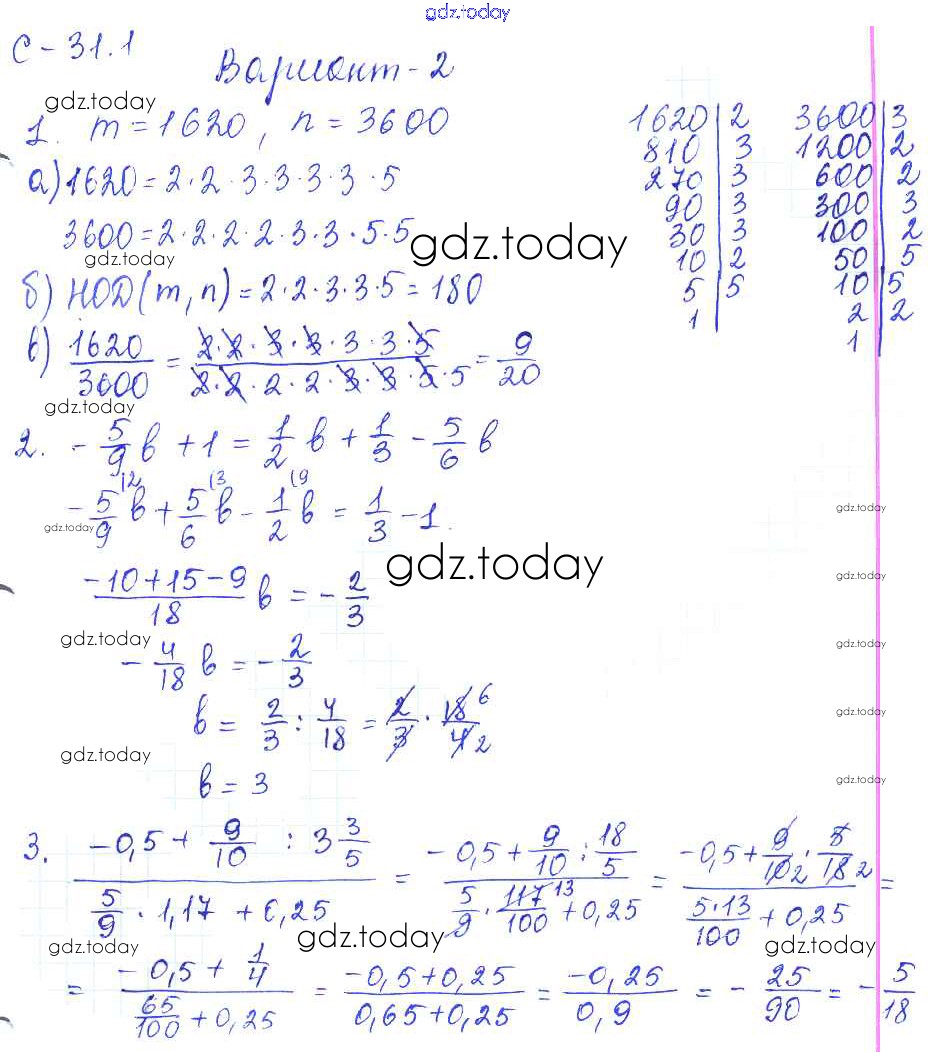 gdz.today
С-31.1
Вариант-2
gdz.today
1. m = 1620, n = 3600
а) 1620 = 2·2·3·3·3·3·5
3600 = 2·2·2·2·3·3·5·5
gdz.today
gdz.today
б) НОД(m,n) = 2·2·3·3·5 = 180
в) 1620/3600 = (2·2·3·3·3·3·5)/(2·2·2·2·3·3·5·5) = 9/20
gdz.today
1620 | 2
810 | 3
270 | 3
90 | 3
30 | 3
10 | 2
5 | 5
1
3600 | 3
1200 | 2
600 | 2
300 | 3
100 | 2
50 | 5
10 | 5
2 | 2
1
2. -5/9 в + 1 = 1/2 в + 1/3 - 5/6 в
-5/9 (2 в + 5/6 (3 в - 1/2 (9 в = 1/3 - 1.
gdz.today
gdz.today
gdz.today
(-10+15-9)/18 в = -2/3
gdz.today
gdz.today
-4/18 в = -2/3
gdz.today
в = 2/3 : 4/18 = 2/3 · 18 6/4 2
gdz.today
gdz.today
в = 3
gdz.today
3. (-0,5 + 9/10 : 3 3/5)/(5/9 · 1,17 + 0,25) = (-0,5 + 9/10 : 18/5)/(5/9 · 117 13/100 + 0,25) = (-0,5 + 9/10 2 · 5/18 2)/(5·13/100 + 0,25) =
gdz.today
gdz.today
gdz.today
= (-0,5 + 1/4)/(65/100 + 0,25) = (-0,5 + 0,25)/(0,65 + 0,25) = -0,25/0,9 = -25/90 = -5/18